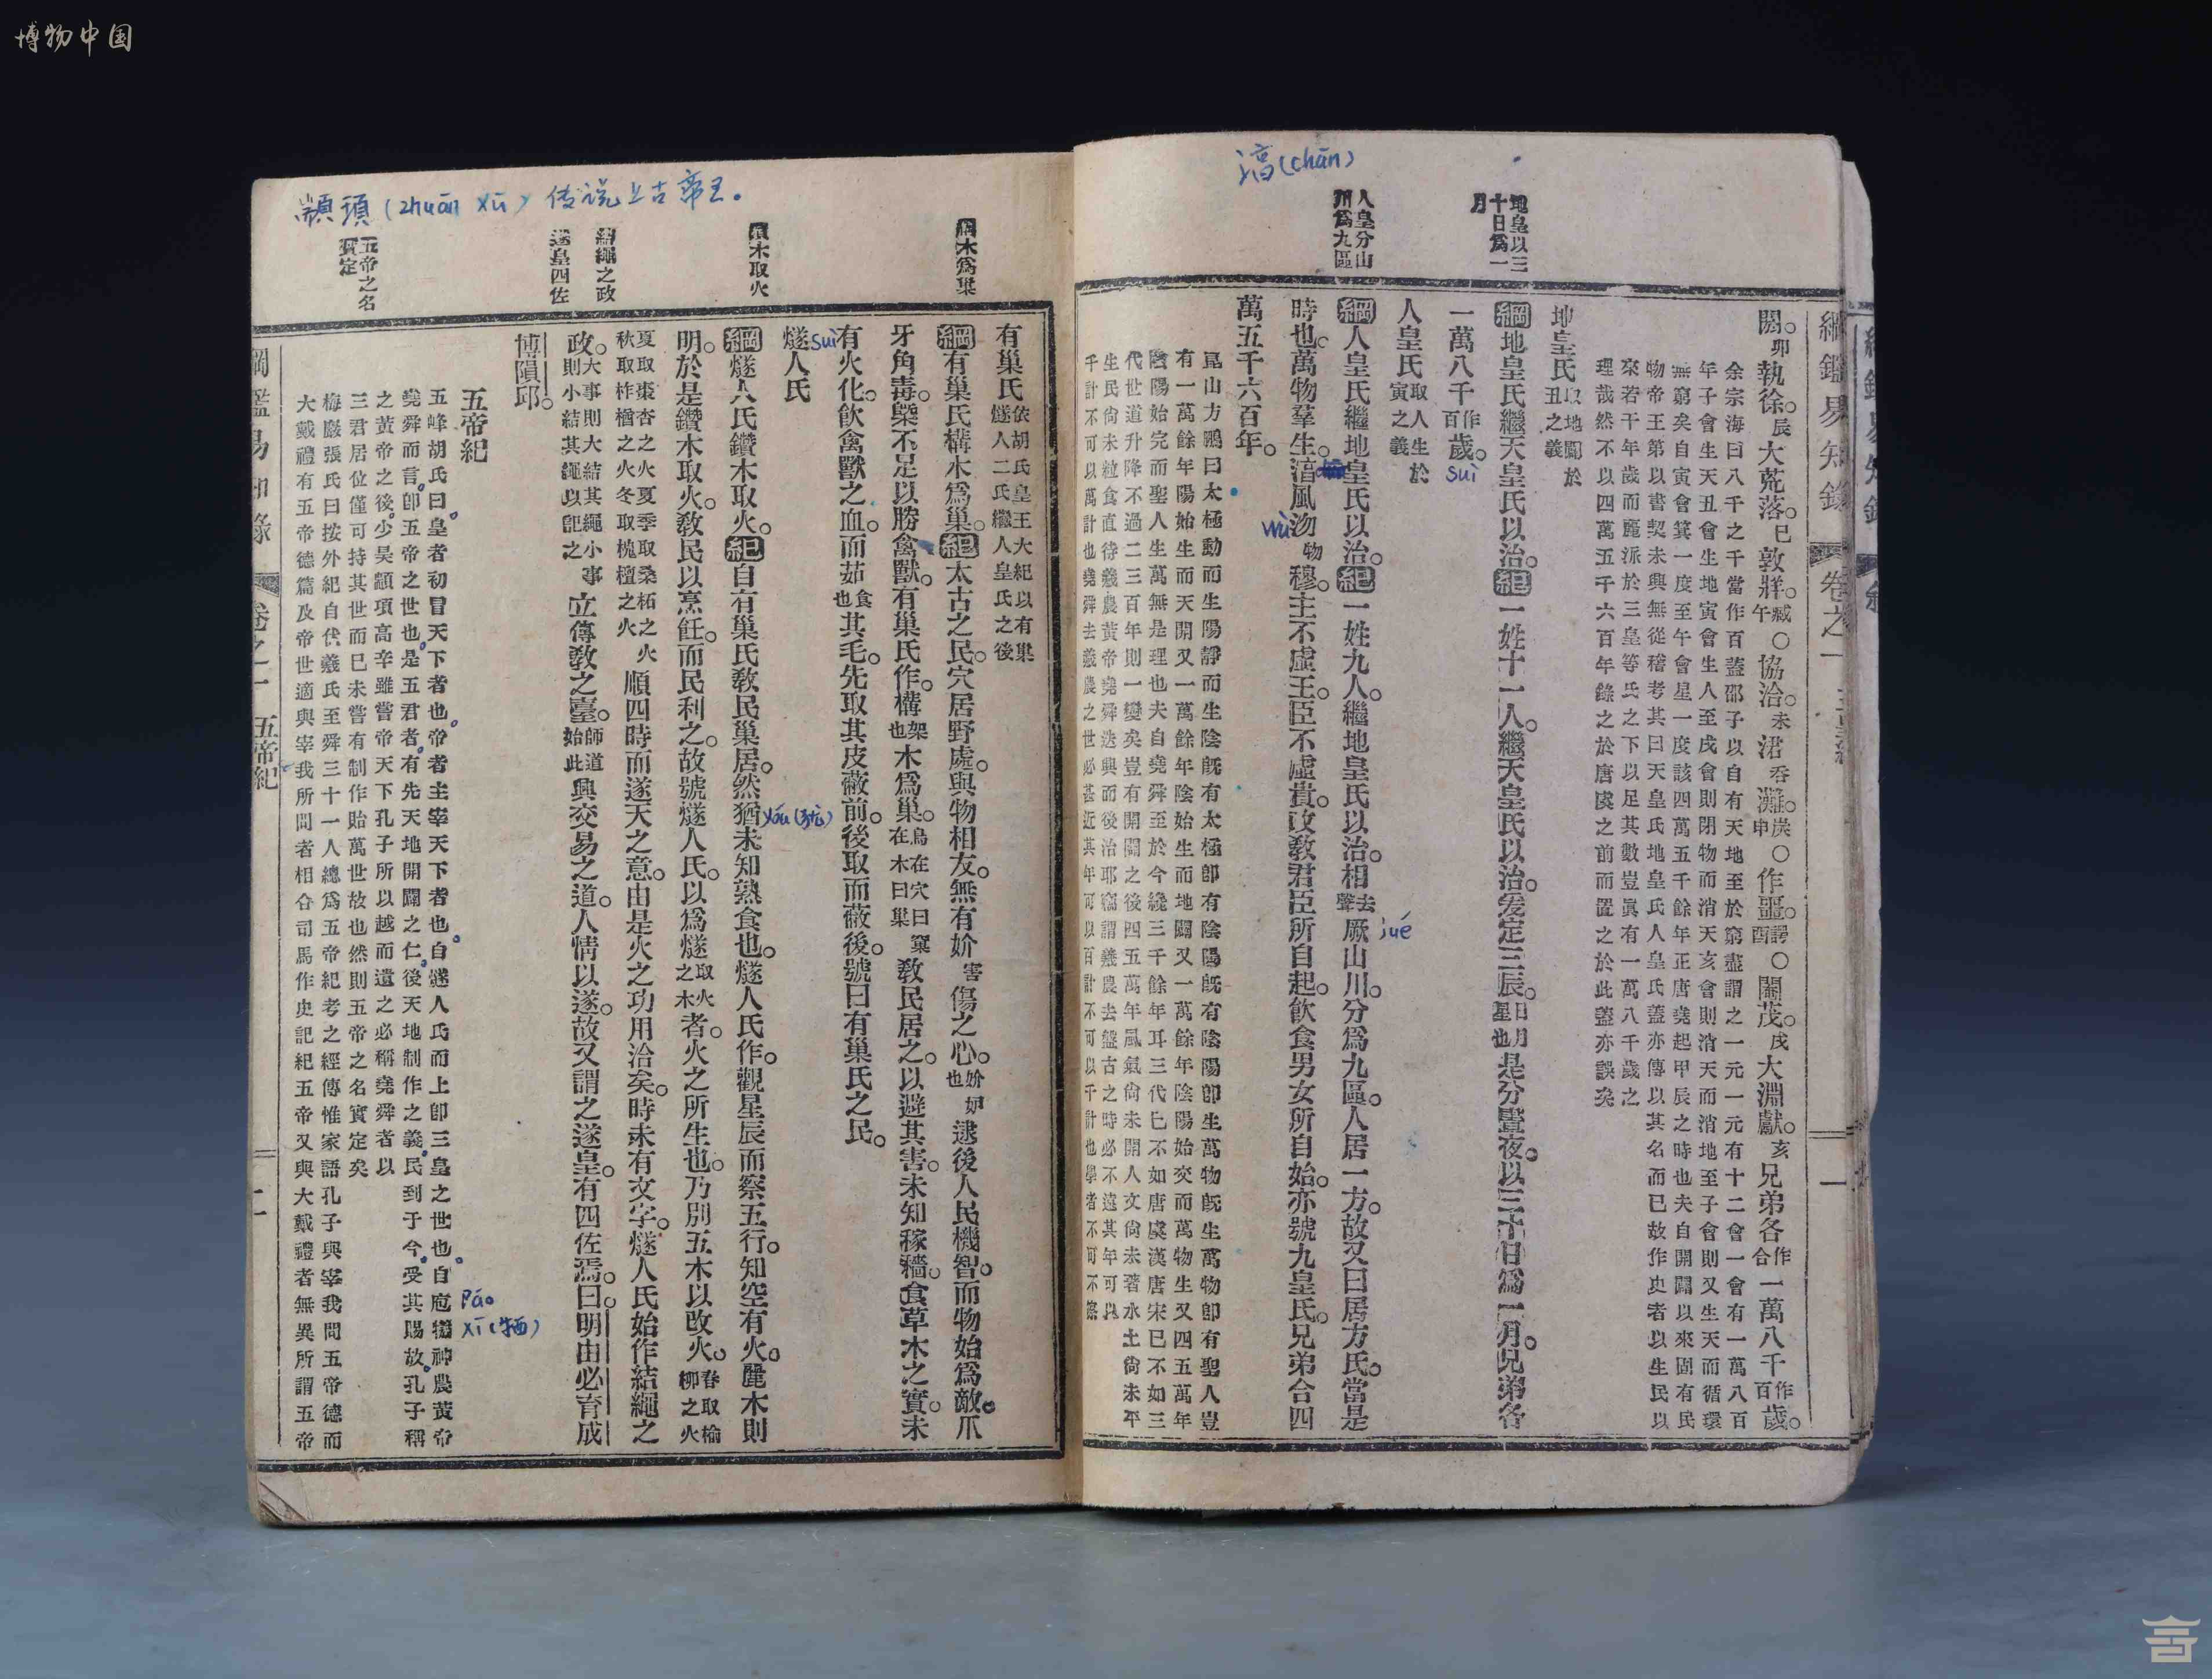 博物中国
淐(chān)
地皇以三
十日爲一
月
人皇分山
川爲九區
綱鑑易知錄 卷之一 一
閼。卯執徐。辰大荒落。巳敦牂。臧午○協洽。未涒吞灘。炭申○作噩。諤酉○閹茂。戌大淵獻。亥兄弟各合作一萬八千百作歲。
余宗海曰八千之千當作百蓋邵子以自有天地至於窮盡謂之一元一元有十二會一會有一萬八百
年子會生天丑會生地寅會生人至戌會則閉物而消天亥會則消天而消地至子會則又生天而循環
無窮矣自寅會箕一度至午會星一度該四萬五千餘年正唐堯起甲辰之時也夫自開闢以來固有民
物帝王第以書契未興無從稽考其曰天皇氏地皇氏人皇氏蓋亦傳以其名而已故作史者以生民以
來若干年歲而麗派於三皇等氏之下以足其數豈眞有一萬八千歲之
理哉然不以四萬五千六百年錄之於唐虞之前而置之於此蓋亦誤矣
地皇氏取地闢於丑之義
綱地皇氏繼天皇氏以治。紀一姓十一人。繼天皇氏以治。爰定三辰。日月星也是分晝夜。以三十日爲一月。兄弟各
一萬八千百作歲。suì
人皇氏取人生於寅之義
綱人皇氏繼地皇氏以治。紀一姓九人。繼地皇氏以治。相去聲厥山川。分爲九區。人居一方。故又曰居方氏。當是
jué
時也。萬物羣生。淐風沕物穆。主不虛王。臣不虛貴。政教君臣所自起。飲食男女所自始。亦號九皇氏。兄弟合四
wù
萬五千六百年。
昆山方鵬曰太極動而生陽靜而生陰旣有太極卽有陰陽旣有陰陽卽生萬物旣生萬物卽有聖人豈
有一萬餘年陽始生而天開又一萬餘年陰始生而地闢又一萬餘年陰陽始交而萬物生又四五萬年
陰陽始完而聖人生萬無是理也夫自堯舜至於今纔三千餘年耳三代已不如唐虞漢唐宋已不如三
代世道升降不過二三百年則一變矣豈有開闢之後四五萬年風氣尙未開人文尙未著水土尙未平
生民尙未粒食直待羲農黃帝堯舜迭興而後治耶竊謂羲農去盤古之時必不遠其年可以
千計不可以萬計也堯舜去羲農之世必甚近其年可以百計不可以千計也學者不可不察
顓頊(zhuān xū)传说上古帝王。
構木爲巢
鑽木取火
結繩之政
遂皇四佐
五帝之名
實定
有巢氏依胡氏皇王大紀以有巢燧人二氏繼人皇氏之後
綱有巢氏構木爲巢。紀太古之民。穴居野處。與物相友。無有妎害傷之心。妎也妒逮後人民機智。而物始爲敵。爪
牙角毒。槩不足以勝禽獸。有巢氏作。構架也木爲巢。鳥在穴曰窠在木曰巢敎民居之。以避其害。未知稼穡。食草木之實。未
有火化。飲禽獸之血。而茹食也其毛。先取其皮蔽前。後取而蔽後。號曰有巢氏之民。
燧人氏
suì
綱燧人氏鑽木取火。紀自有巢氏敎民巢居。然猶未知熟食也。燧人氏作。觀星辰而察五行。知空有火。麗木則
yóu(犹)
明。於是鑽木取火。敎民以烹飪。而民利之。故號燧人氏。以爲燧取火之木者。火之所生也。乃別五木以改火。春取榆柳之火
夏取棗杏之火夏季取桑柘之火秋取柞楢之火冬取槐檀之火順四時而遂天之意。由是火之功用洽矣。時未有文字。燧人氏始作結繩之
政。大事則大結其繩小事則小結其繩以記之立傳敎之臺。師道始此興交易之道。人情以遂。故又謂之遂皇。有四佐焉。曰。明由必育成
博隕邱。
五帝紀
五峰胡氏曰皇者初冒天下者也帝者主宰天下者也自燧人氏而上卽三皇之世也自庖犧神農黃帝
Páo
xī(牺)
堯舜而言卽五帝之世也是五君者有先天地開闢之仁後天地制作之義民到于今受其賜故孔子稱
之黃帝之後少昊顓頊高辛雖嘗帝天下孔子所以越而遺之必稱堯舜者以
三君居位僅可持其世而已未嘗有制作貽萬世故也然則五帝之名實定矣
梅巖張氏曰按外紀自伏羲氏至舜三十一人總爲五帝紀考之經傳惟家語孔子與宰我問五帝德而
大戴禮有五帝德篇及帝世適與宰我所問者相合司馬作史記紀五帝又與大戴禮者無異所謂五帝
綱鑑易知錄 卷之一 五帝紀 二